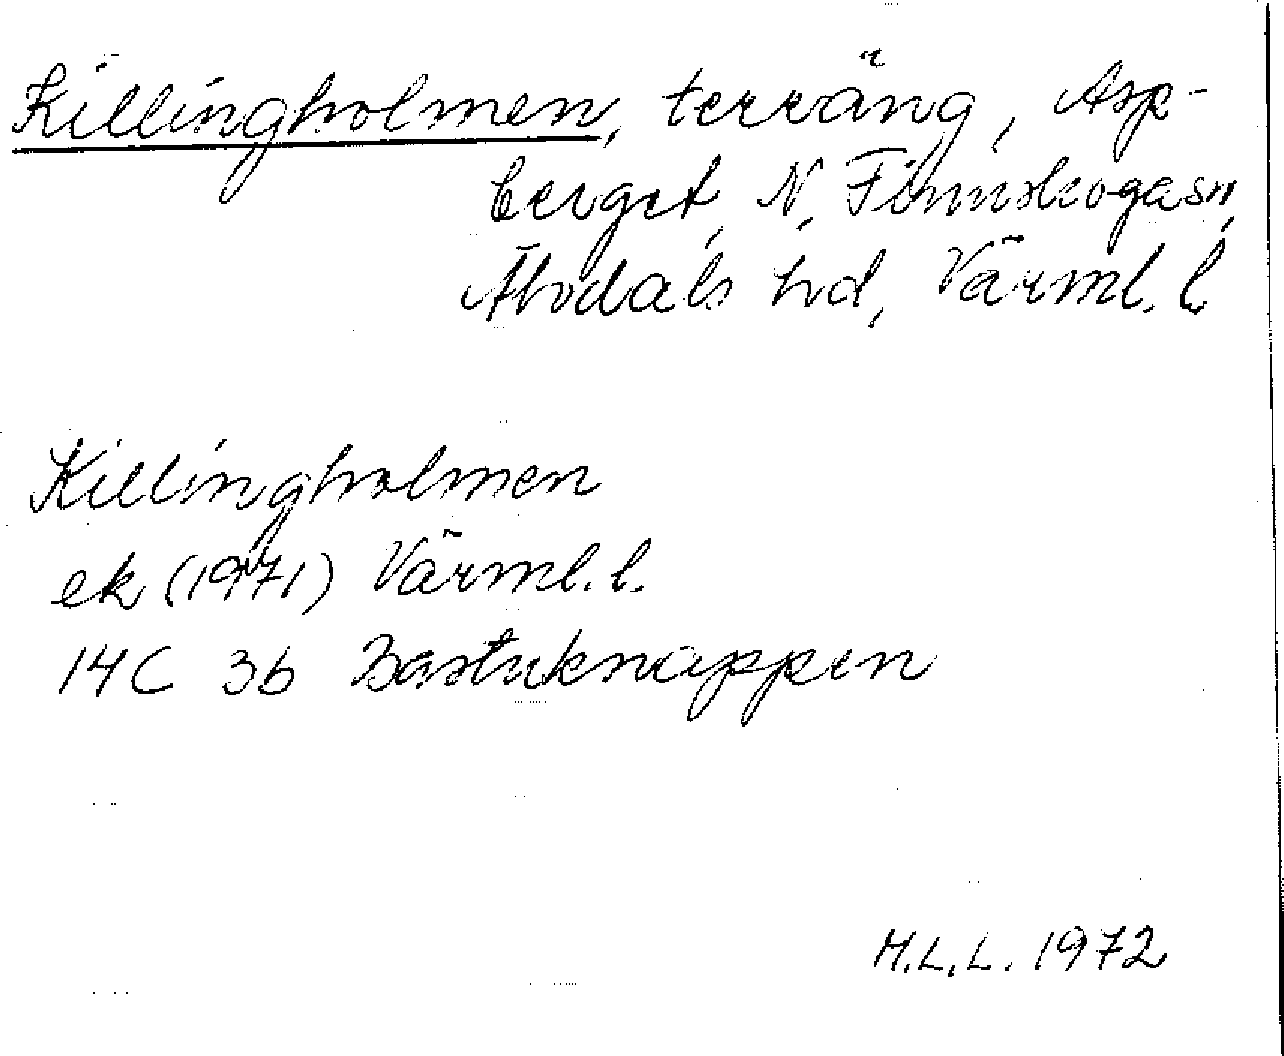 Killingholmen, terräng, Asp-
berget, N. Finnskoga sn,
Älvdals hd, Värml. l
Killingholmen
ek (1971) Värml. l.
14C 3b Bastuknappen
M.L.L. 1972